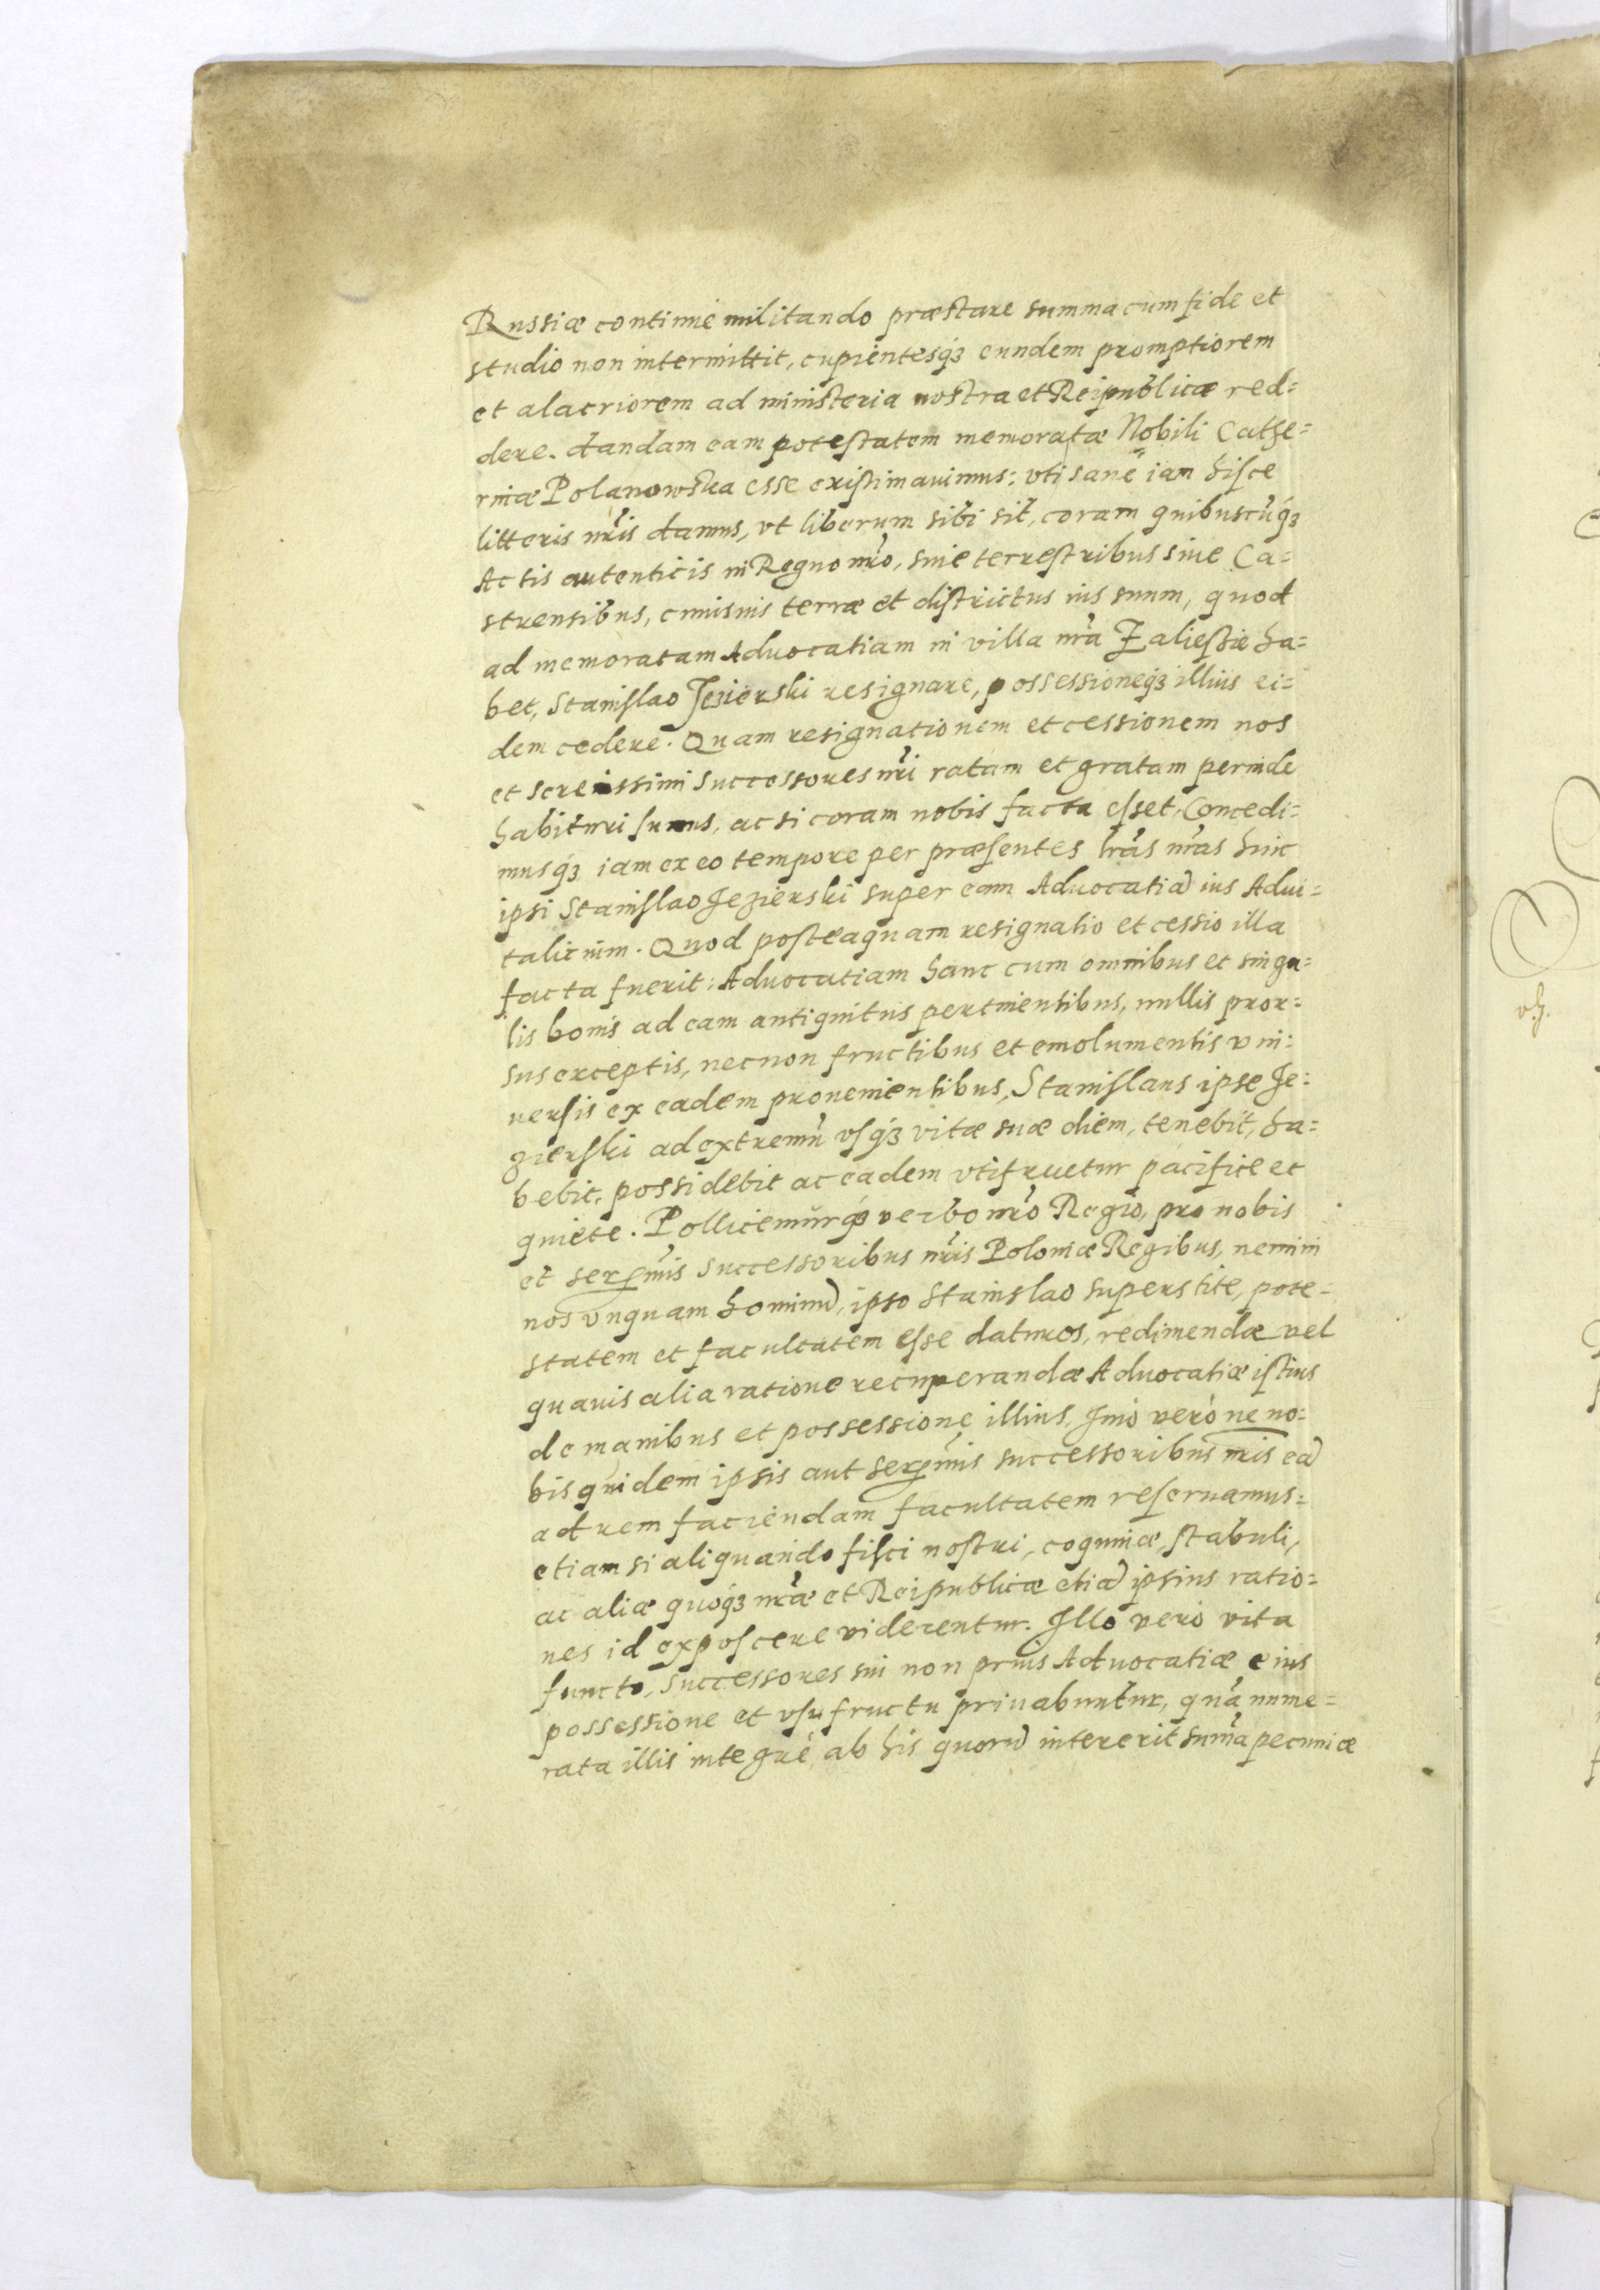 Russiæ continuè militando præstare summa cum fide et
studio non intermittit, cupientesq́ʒ eundem promptiorem
et alacriorem ad ministeria nostra et Reipublicæ red=
dere. dandam eam potestatem memoratæ Nobili Cathe=
rinæ Polanowska esse existimauimus: vti sanè iam hisce
litteris nr̃is damus, vt liberum sibi sit, coram quibuscũq́ʒ
Actis autenticis in Regno nr̃o, siue terrestribus siue Ca=
strensibus, cuiusuis terræ et districtus ius suum, quod
ad memoratam Aduocatiam in villa nr̃a Zaliestie ha=
bet, Stanislao Jezierski resignare, possessioneq́ʒ illius ei=
dem cedere. Quam resignationem et cessionem nos
et serenissimi successores nr̃i ratam et gratam perinde
habituri sumus, ac si coram nobis facta esset, Concedi=
musq́ʒ iam ex eo tempore per præsentes lr̃as nr̃as huic
ipsi Stanislao Jezierski super eam Aduocatiã ius Adui=
talicium. Quod posteaquam resignatio et cessio illa
facta fuerit: Aduocatiam hanc cum omnibus et singu=
lis bonis ad eam antiquitus pertinentibus, nullis pror=
sus exceptis, necnon fructibus et emolumentis vni=
uersis ex eadem prouenientibus, Stanislaus ipse Je=
zierski ad extremũ vsq́ʒ vitæ suæ diem, tenebit, ha=
bebit, possidebit ac eadem vtifruetur pacificè et
quietè. Pollicemurq́ʒ verbo nr̃o Regio, pro nobis
et serꝑmis successoribus nr̃is Poloniæ Regibus, nemini
nos vnquam hominũ, ipso Stanislao superstite, pote=
statem et facultatem esse daturos, redimendæ vel
quauis alia ratione recuperandæ Aduocatiæ istius
de manibus et possessione illius. Imò verò ne no=
bis quidem ipsis aut serꝑmis successoribus nr̃is eã
ad rem faciendam facultatem reseruamus:
etiam si aliquando fisci nostri, coquinæ, stabuli,
ac aliæ quoq́ʒ nr̃æ et Reipublicæ etiã ipsius ratio=
nes id exposcere viderentur. Illo verò vita
functo, successores sui non prius Aduocatiæ eius
possessione et vsufructu priuabuntur, quã nume=
rata illis integrè, ab his quorũ intererit sum̃a pecuniæ